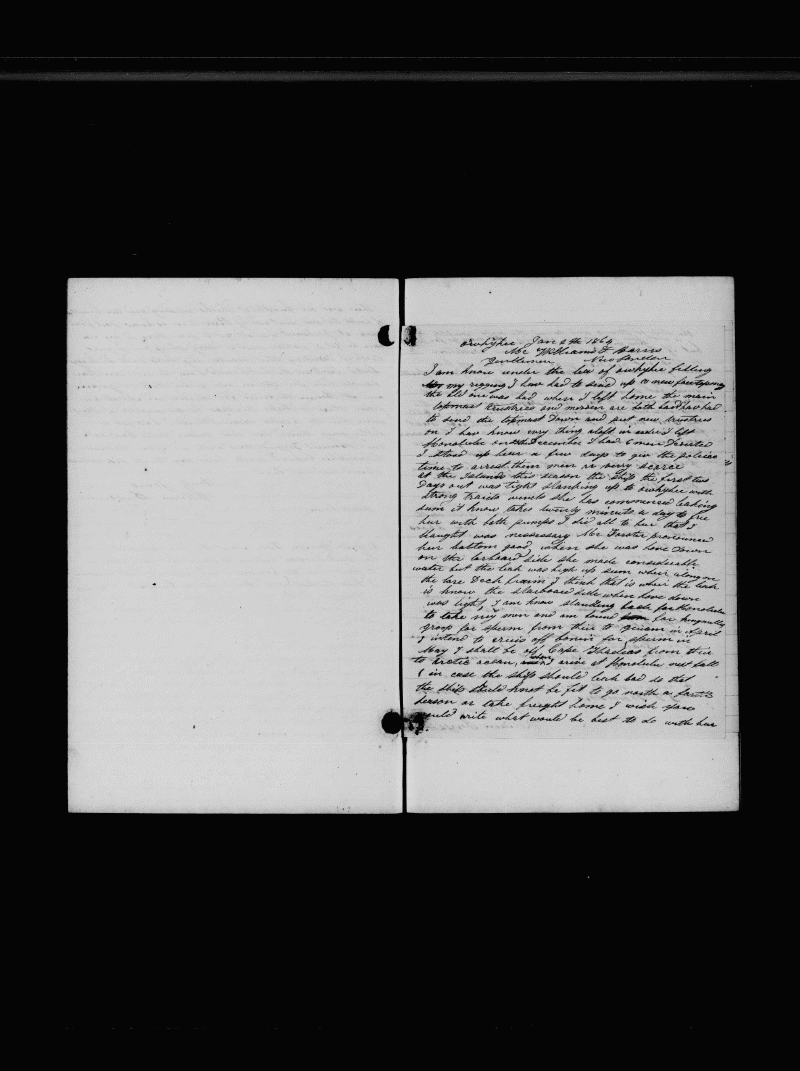 owhyhee Jan 8th 1864
Mr Williams & Barns
Gentlemen New London
I am know under the lea of owhyhee fitting
my rigging I have had to send up a new foretopmast
the old one was bad when I left home the main
topmast trustries and mizzen are both bad have had
to send the topmast down and put new trustries
on I hav know evry thing aloft in order I left
Honolulu on December I had 6 men Deserted
I stood up hear a few days to giv the poleice
time to arrest them men is very scarce
at the Islands this season the ship the first ten
Days out was tight standing up to owhyhee with
strong traids winds she has commenced leaking
sum it know takes twenty minuts a day to free
her with both pumps I did all to her that I
thaught was nessessary Mr Forster pronounced
her bottom good, when she was hove Down
on the larboard side she made considerable
water but the leak was high up sum wheir along on
the lore Deck I think that is wheir the leak
is know the starboard side when hove down
was tight, I am know standing back for Honolulu
to take my men and am bound for kingsmills
group for sperm from thier to guam in April
I intend to cruis off bonin for sperm in
May I shall be off Cape Thadeas from thier
to Arctic ocean, and arive at Honolulu next fall
in case the ship should leak bad so that
the ship should knot be fit to go north a
season or take freight home I wish you
would write what would be best to do with her